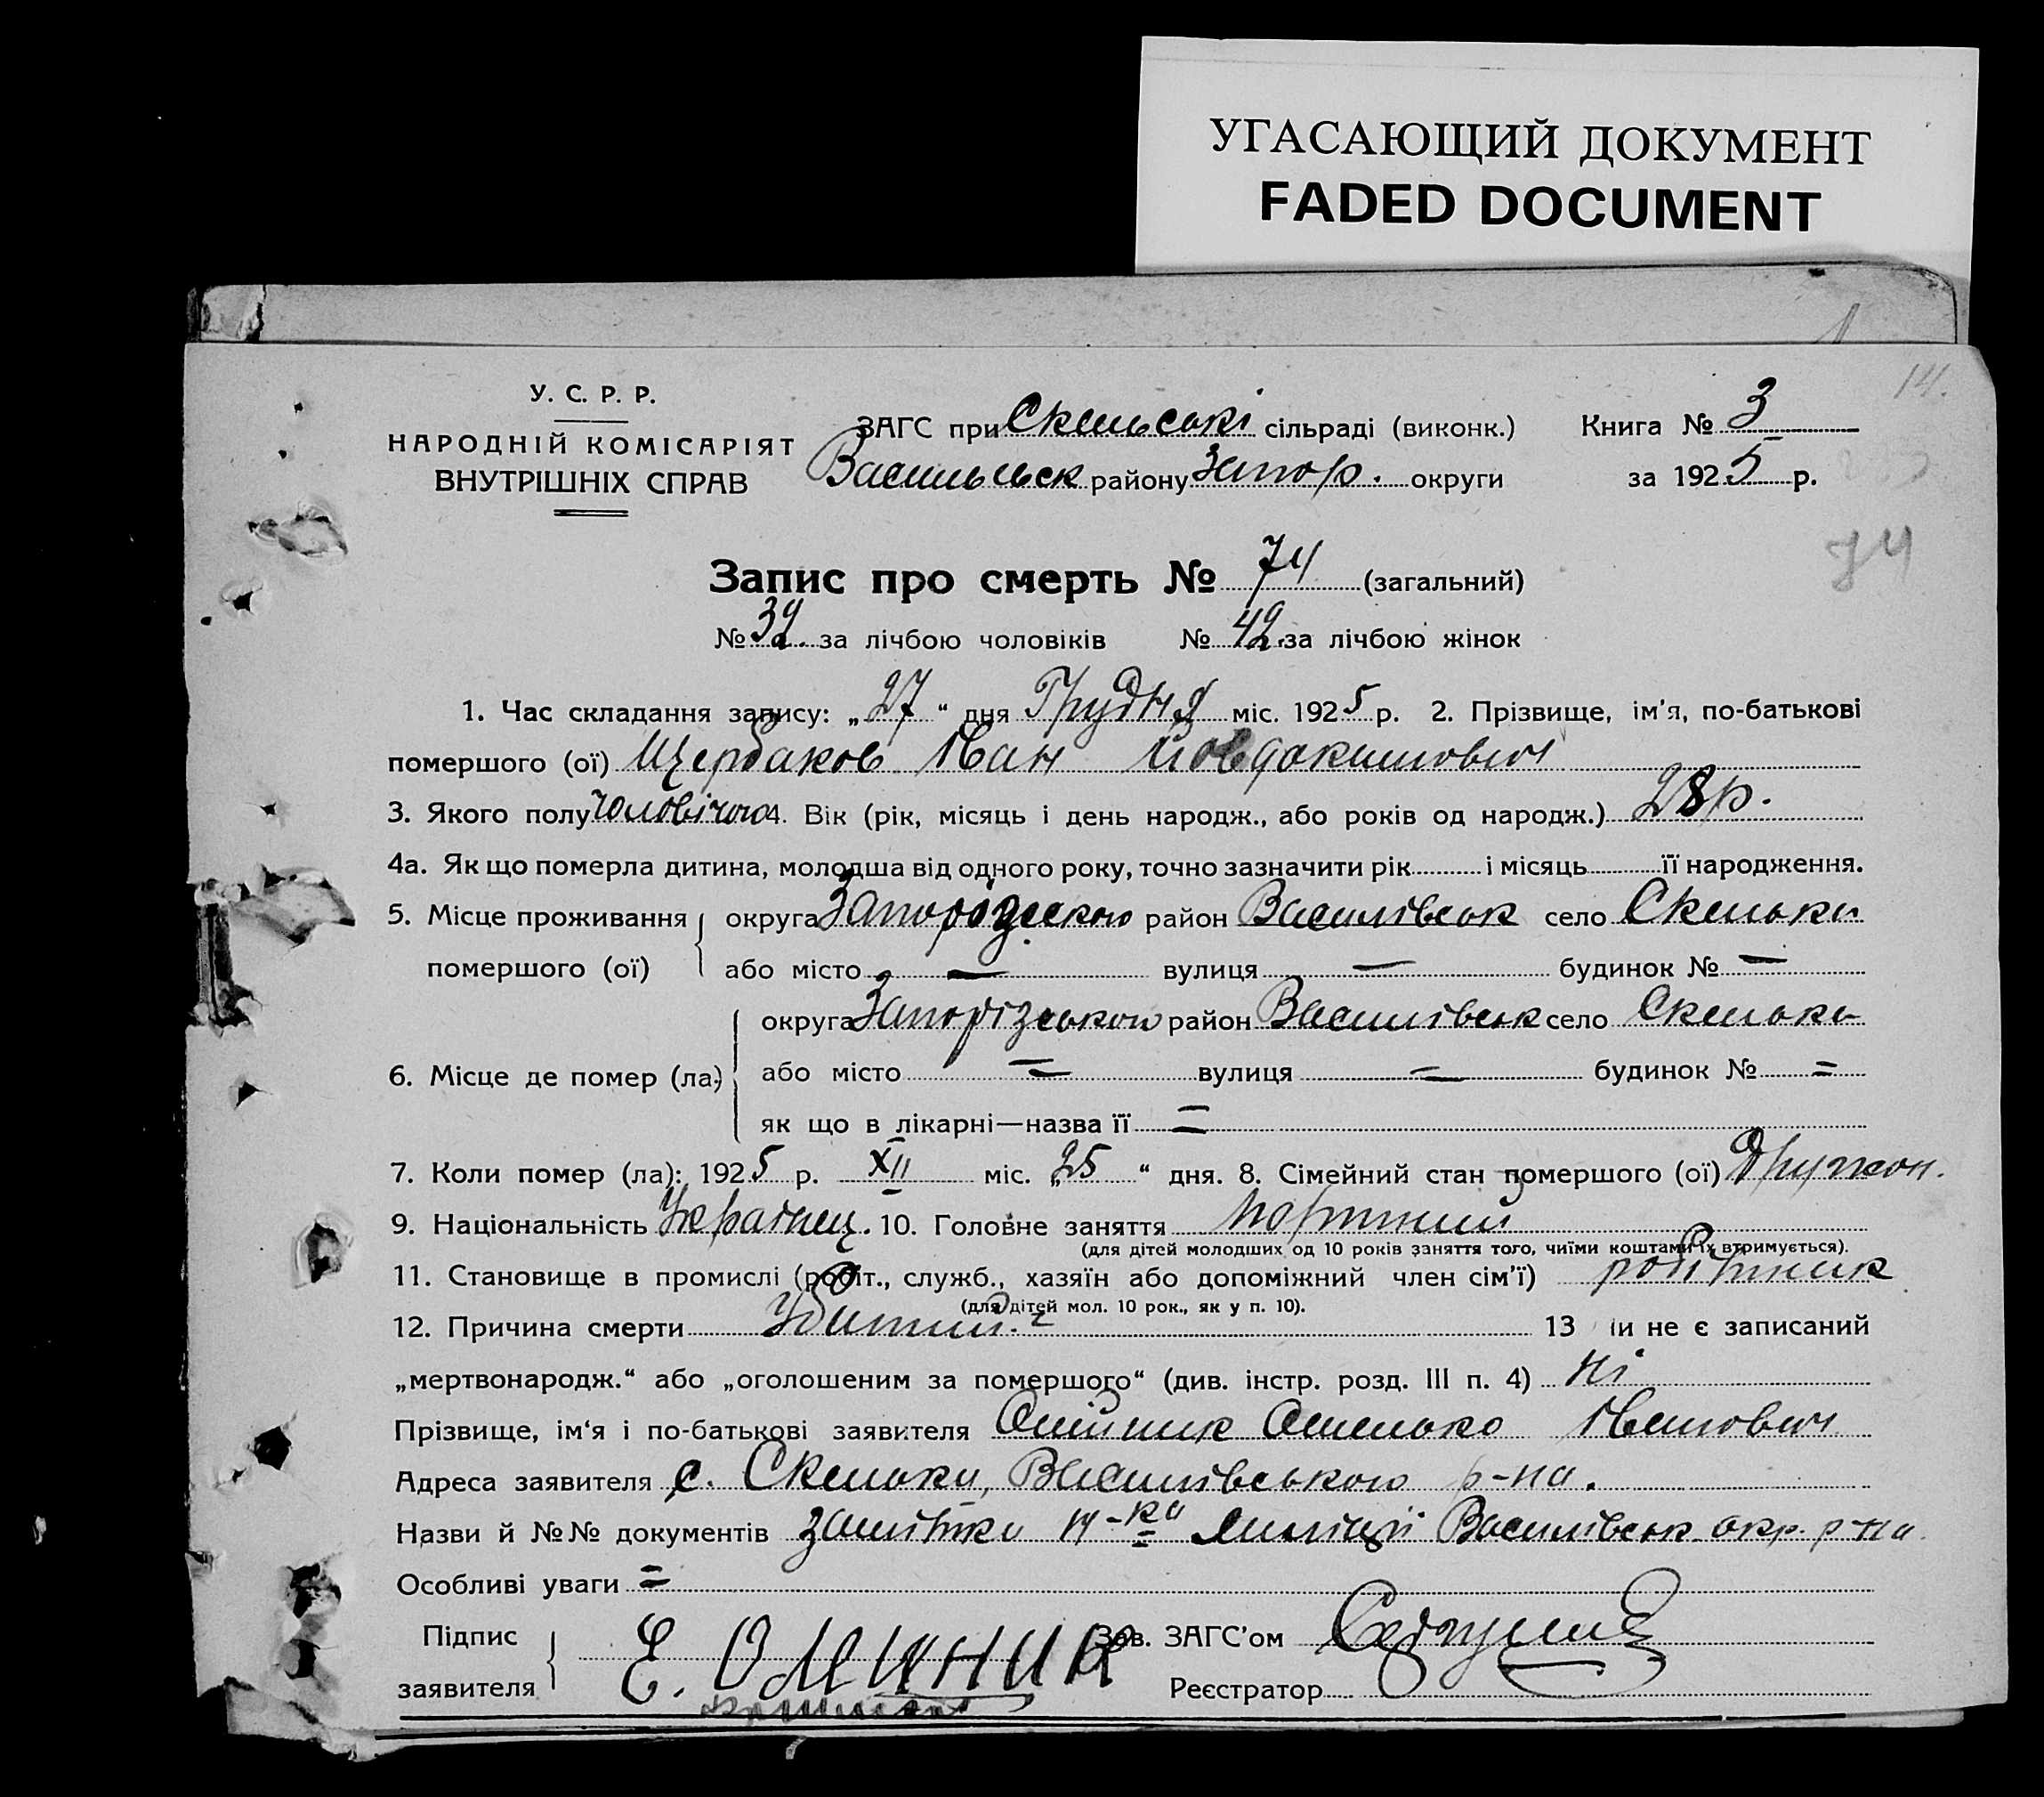 УГАСАЮЩИЙ ДОКУМЕНТ
FADED DOCUMENT
14.
У. С. Р. Р.
НАРОДНІЙ КОМІСАРІЯТ
ВНУТРІШНІХ СПРАВ
ЗАГС при Скельські сільраді (виконк.)
Васильськ району Запор. округи
Книга № 3
за 1925 р.
74
Запис про смерть № 74 (загальний)
№ 32. за лічбою чоловіків № 42. за лічбою жінок
1. Час складання запису: „27“ дня Грудня міс. 1925 р. 2. Прізвище, ім’я, по-батькові
помершого (ої) Щербаков Іван Йовдокимович
3. Якого полу чоловічого 4. Вік (рік, місяць і день народж., або років од народж.) 28 р.
4а. Як що померла дитина, молодша від одного року, точно зазначити рік і місяць її народження.
5. Місце проживання помершого (ої) округа Запорізською район Василівськ село Скельки
або місто — вулиця — будинок № —
6. Місце де помер (ла) округа Запорізською район Василівськ село Скельки
або місто = вулиця = будинок № =
як що в лікарні—назва її =
7. Коли помер (ла): 1925 р. XII міс. „25“ дня. 8. Сімейний стан помершого (ої) Дружон.
9. Національність Українец. 10. Головне заняття портний
(для дітей молодших од 10 років заняття того, чиїми коштами їх втримується).
11. Становище в промислі (робіт., служб., хазяїн або допоміжний член сім’ї) робітник
(для дітей мол. 10 рок., як у п. 10).
12. Причина смерти Убитий. 13 и не є записаний
„мертвонародж.“ або „оголошеним за помершого“ (див. інстр. розд. III п. 4) ні
Прізвище, ім‘я і по-батькові заявителя Олійник Омелько Іванович
Адреса заявителя с. Скельки, Василівського р-на.
Назви й №№ документів замітка н-ка міліції Василівськ. окр. р-на
Особливі уваги =
Підпис заявителя Е. Олиник
Зав. ЗАГС’ом
Реєстратор